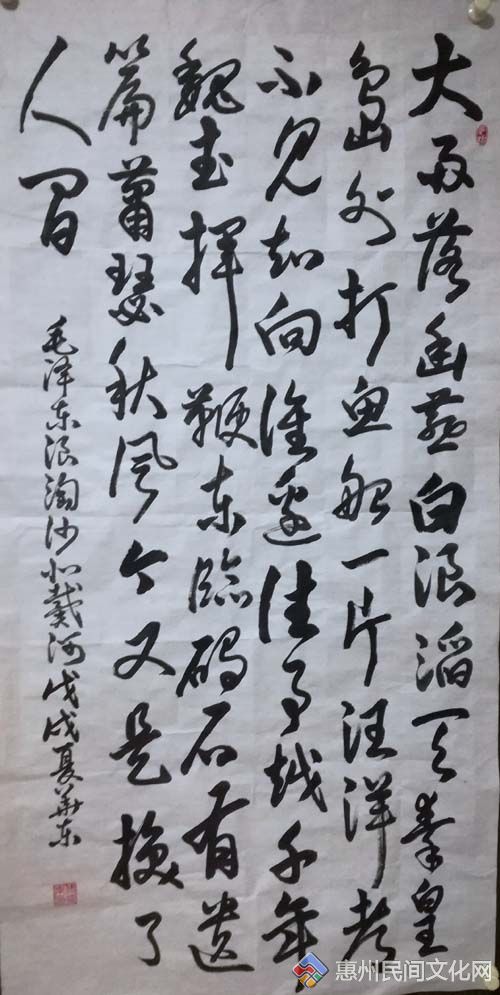 大雨落幽燕白浪滔天秦皇
島外打魚船一片汪洋都
不見知向誰邊往事越千年
魏武揮鞭东臨碣石有遺
篇蕭瑟秋风今又是換了
人間
毛泽东浪淘沙北戴河戊戌夏华东
惠州民间文化网